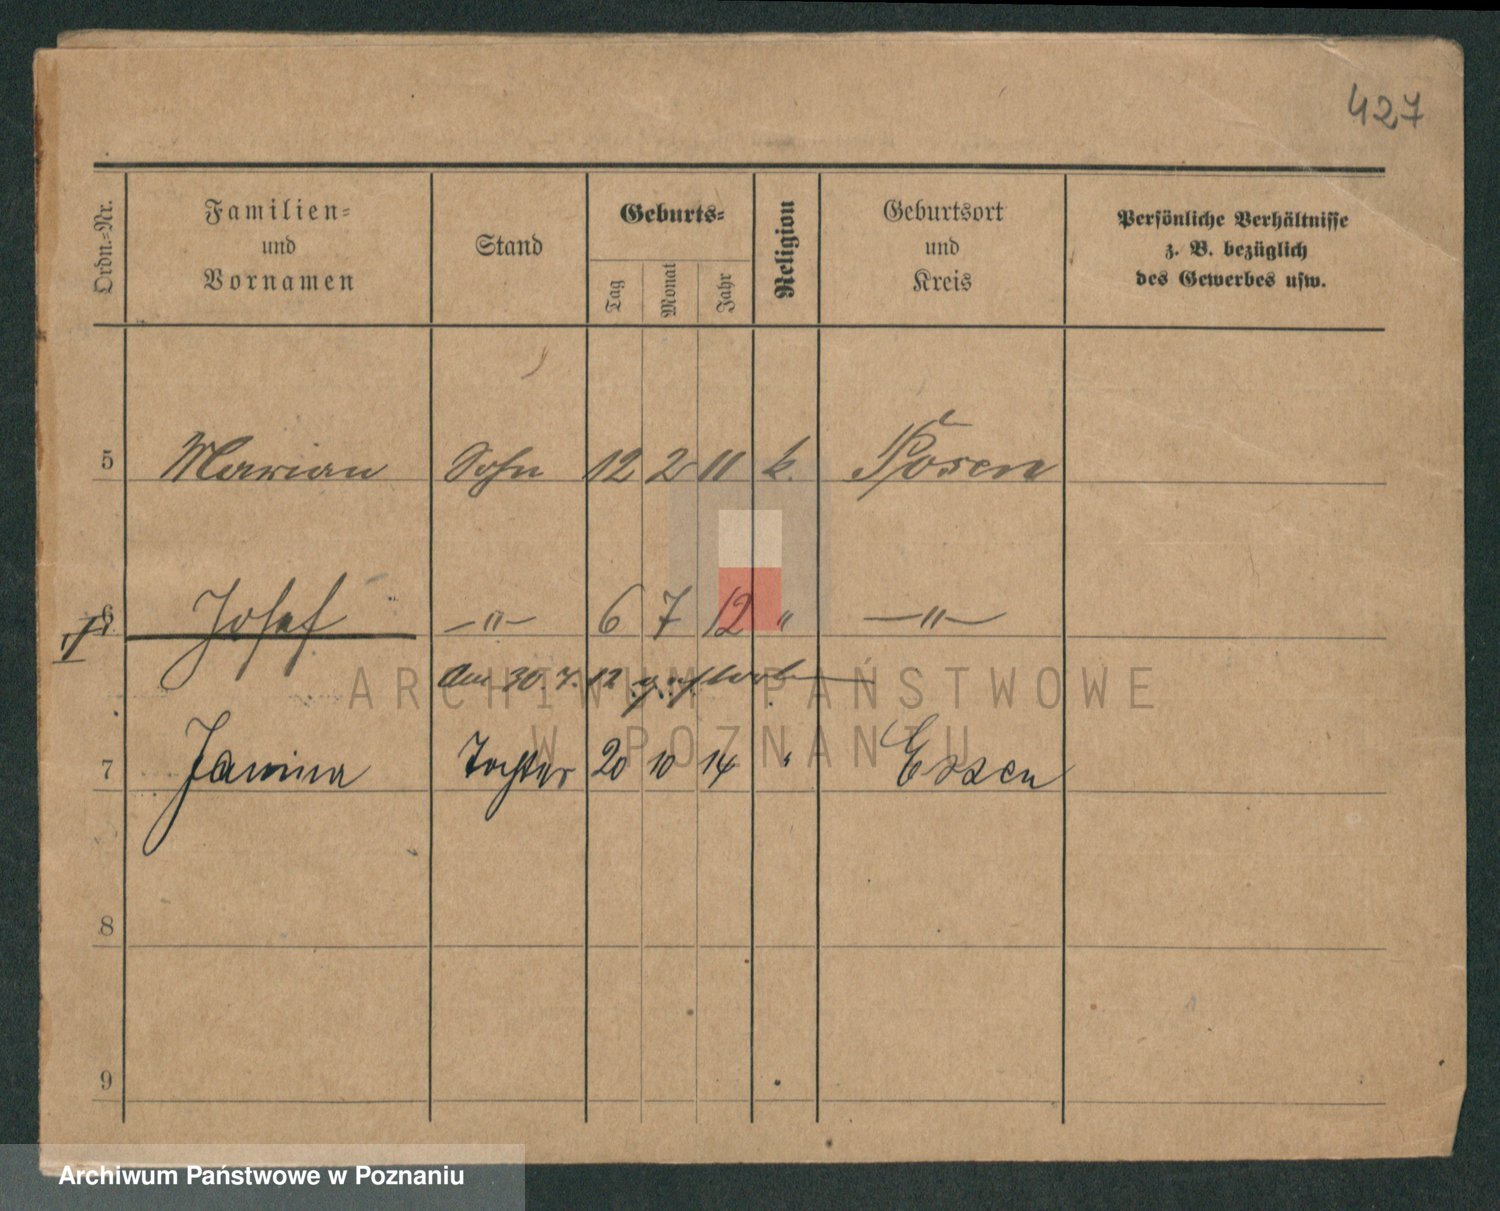 427
Ordn.-Nr.
Familien-
und
Vornamen
Stand
Geburts-
Tag
Monat
Jahr
Religion
Geburtsort
und
Kreis
Persönliche Verhältnisse
z. B. bezüglich
des Gewerbes usw.
5 Marian Sohn 12 2 11 k. Posen
6 Josef —"— 6 7 12 " —"—
Am 30.7.12 gestorben
ARCHIWUM PAŃSTWOWE
W POZNANIU
7 Janina Tochter 20 10 14 " Essen
8
9
Archiwum Państwowe w Poznaniu